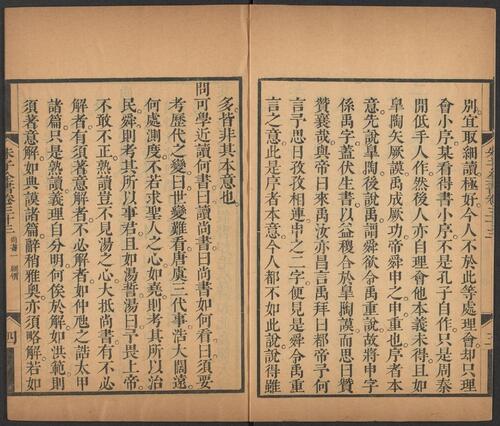 別宜取細讀極好今人不於此等處理會却只理
會小序某看得書小序不是孔子自作只是周秦
間低手人作然後人亦自理會他本義未得且如
臯陶矢厥謨禹成厥功帝舜申之申重也序者本
意先說臯陶後說禹謂舜欲令禹重說故將申字
係禹字蓋伏生書以益稷合於臯陶謨而思曰贊
贊襄哉與帝曰來禹汝亦昌言禹拜曰都帝予何
言予思日孜孜相連申之二字便見是舜令禹重
言之意此是序者本意今人都不如此說說得雖
多皆非其本意也
問可學近讀何書曰讀尚書曰尚書如何看曰須要
考歷代之變曰世變難看唐虞三代事浩大闊遠
何處測度不若求聖人之心如堯則考其所以治
民舜則考其所以事君且如湯誓湯曰予畏上帝
不敢不正熟讀豈不見湯之心大抵尚書有不必
解者有須著意解者不必解者如仲虺之誥太甲
諸篇只是熟讀義理自分明何俟於解如洪範則
須著意解如典謨諸篇辭稍雅奧亦須略解若如
朱子全書卷三十三 尚書一 綱領 四